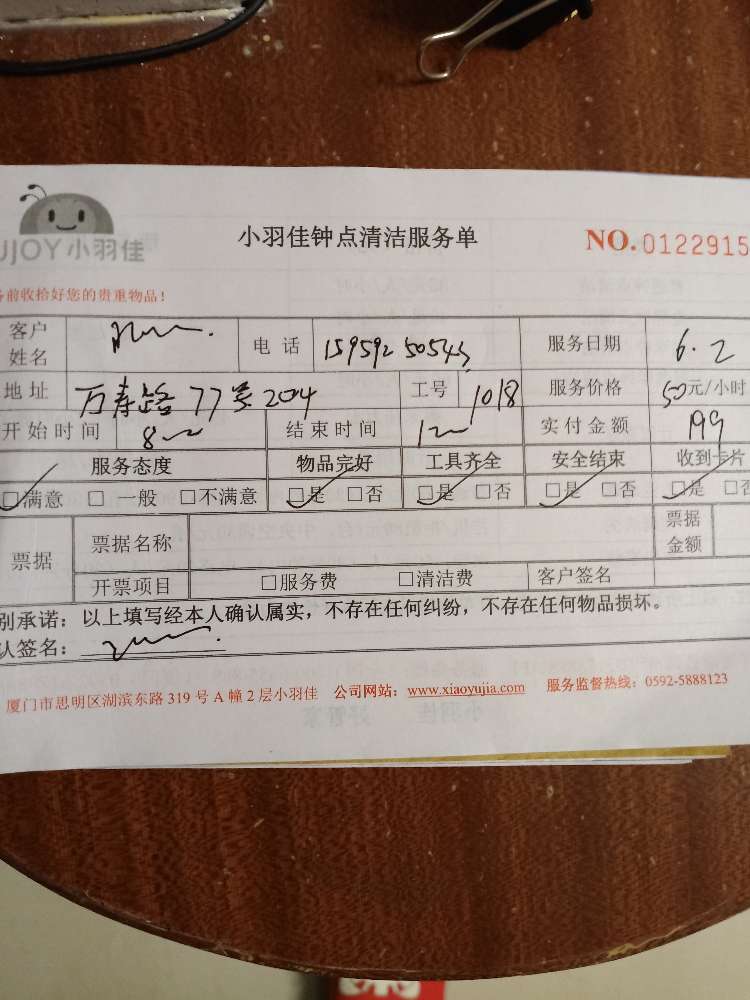 UJOY小羽佳
小羽佳钟点清洁服务单
NO. 0122915
前收拾好您的贵重物品！
客户姓名 电话 15959250543 服务日期 6.2
地址 万寿路77号204 工号 1018 服务价格 50元/小时
开始时间 8 结束时间 12 实付金额 199
服务态度 物品完好 工具齐全 安全结束 收到卡片
☑满意 □一般 □不满意 ☑是 □否 ☑是 □否 ☑是 □否 ☑是 □否
票据 票据名称 票据金额
开票项目 □服务费 □清洁费 客户签名
别承诺：以上填写经本人确认属实，不存在任何纠纷，不存在任何物品损坏。
认签名：
厦门市思明区湖滨东路 319 号 A 幢 2 层小羽佳 公司网站：www.xiaoyujia.com 服务监督热线：0592-5888123